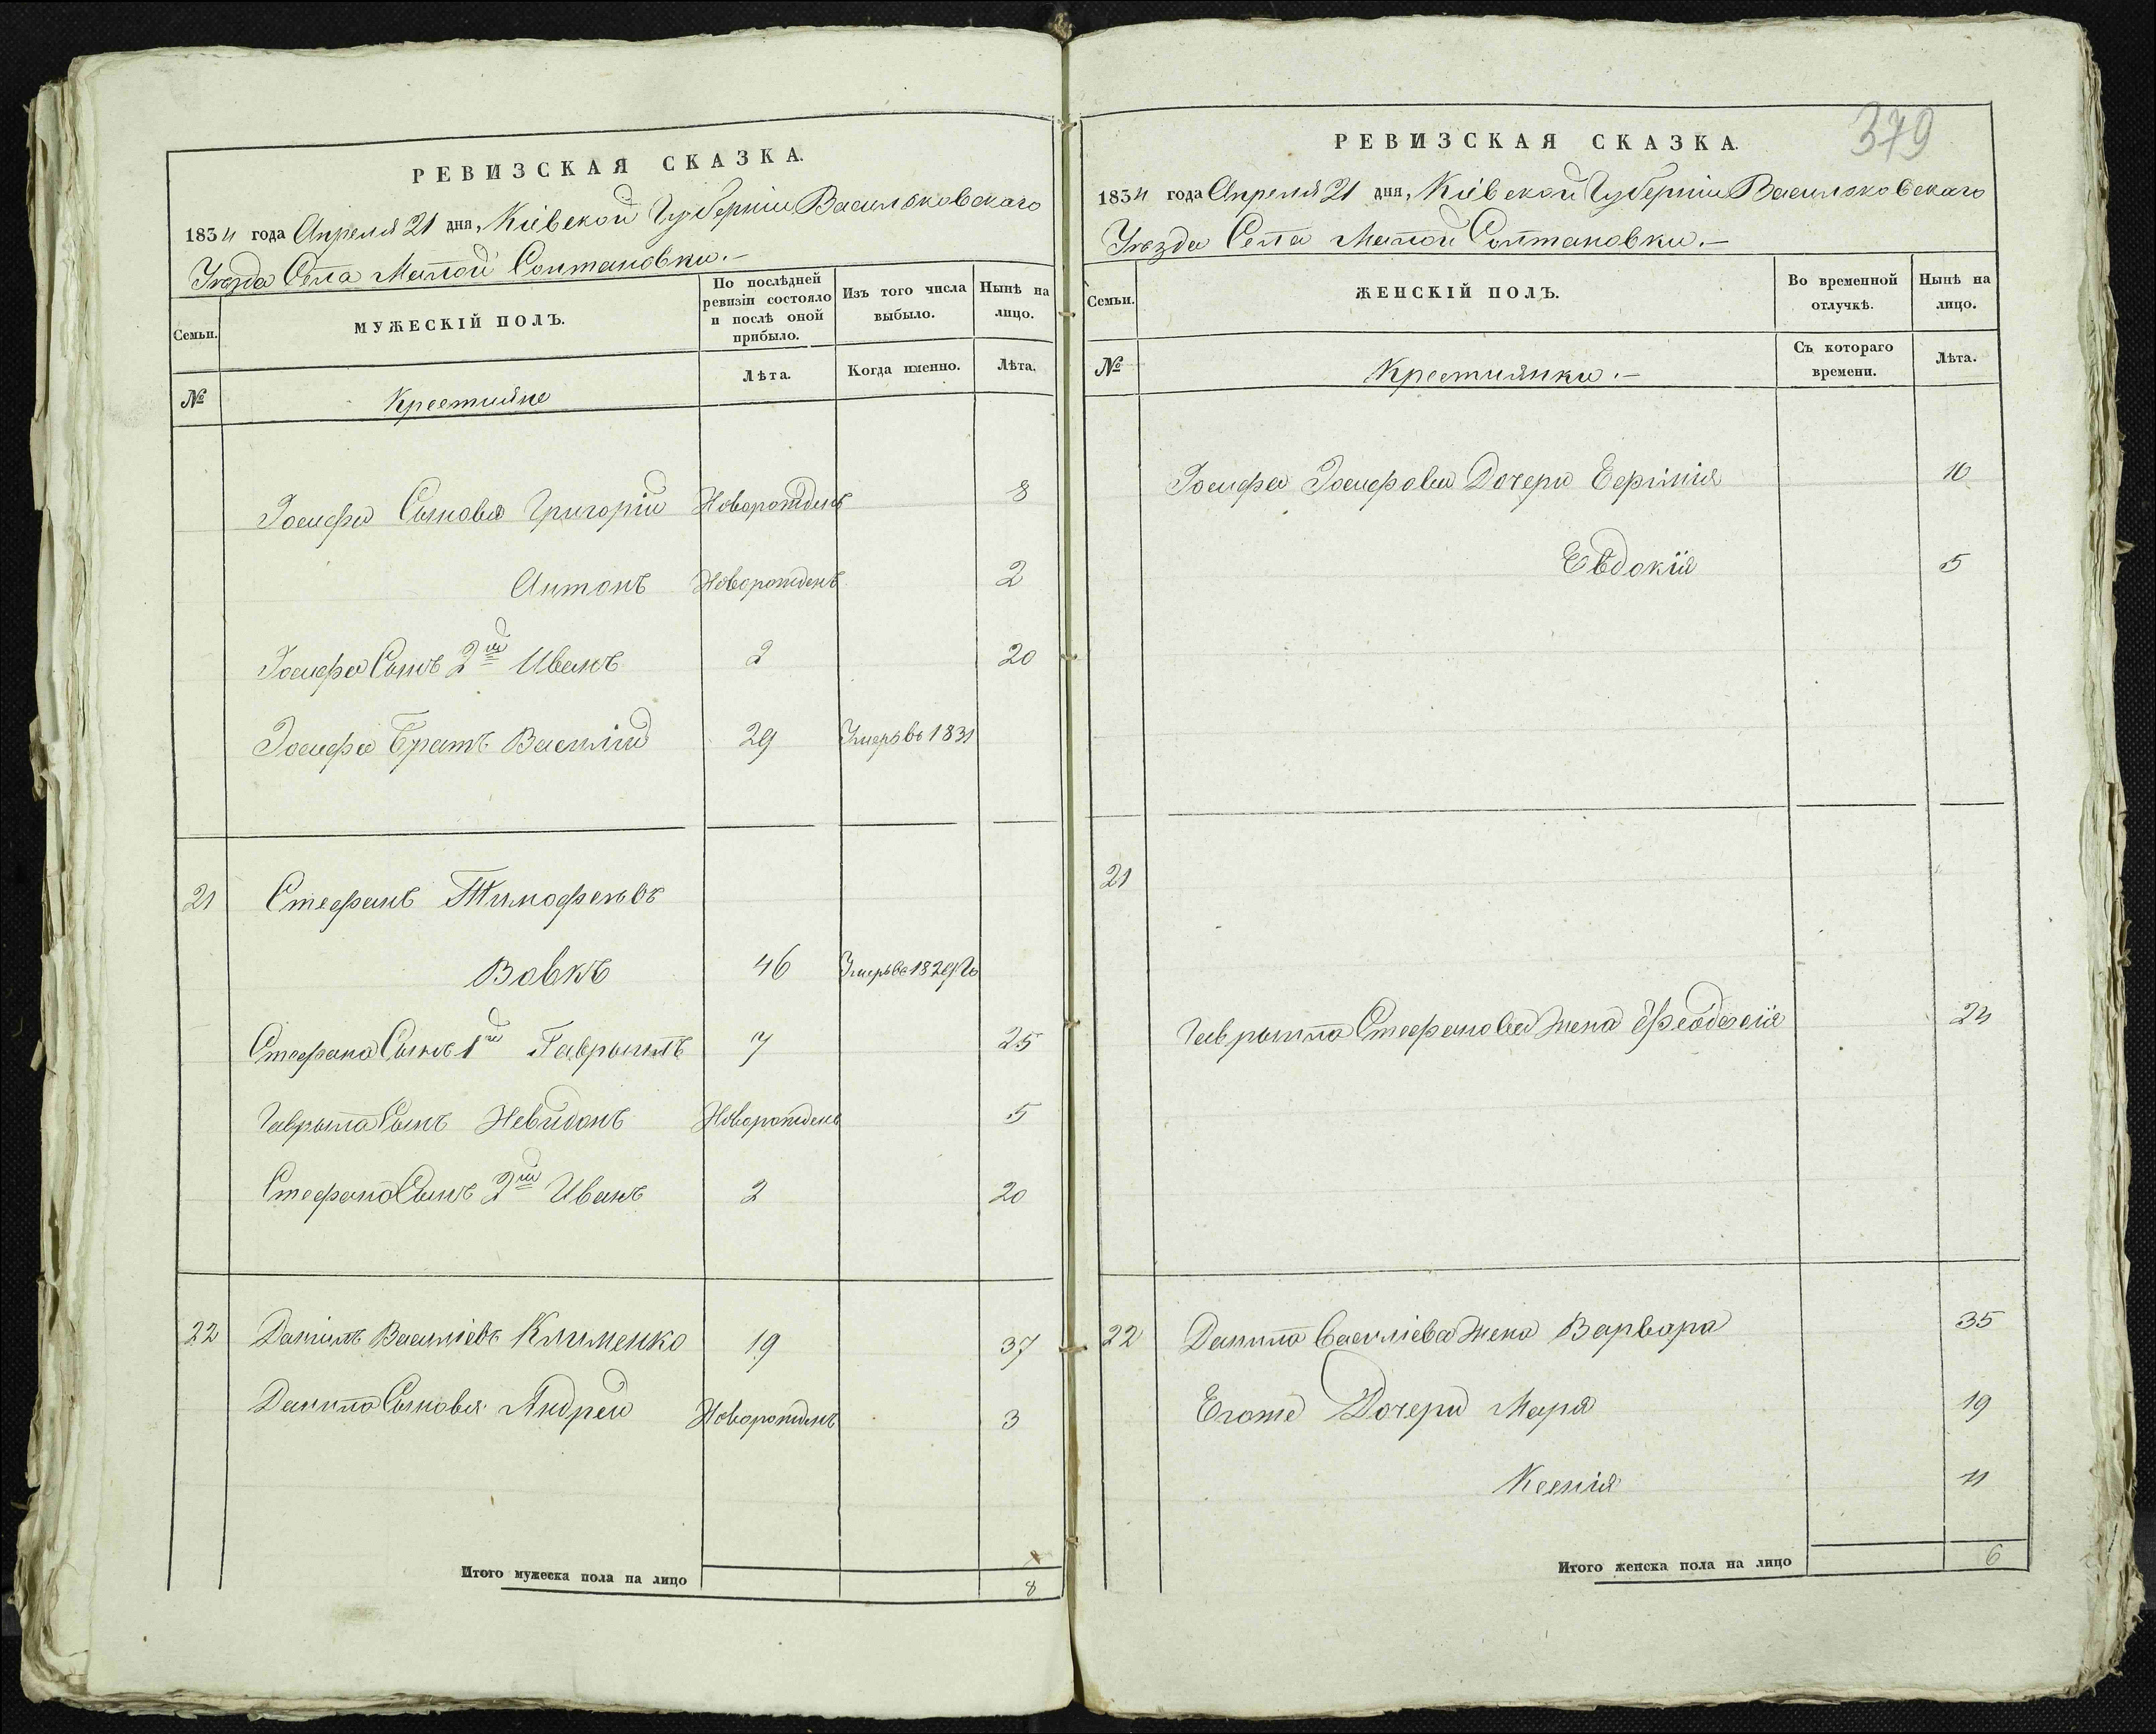 РЕВИЗСКАЯ СКАЗКА.
1834 года Апреля 21 дня, Кіевской Губерніи Васильковскаго
Уезда Села Малой Солтановки.-
Семьи.
МУЖЕСКІЙ ПОЛЪ.
По послѣдней ревизіи состояло и послѣ оной прибыло.
Изъ того числа выбыло.
Нынѣ на лицо.
№
Крестьяне
Лѣта.
Когда именно.
Лѣта.
Іосифа Сыновья Григорій Новорожденъ 8
Антонъ Новорожденъ 2
Іосифа Сынъ 2й Иванъ 2 20
Іосифа Братъ Василій 29 Умеръ въ 1831
21 Стефанъ Тимофеевъ
Вовкъ 46 Умеръ въ 1829 Го
Стефана Сынъ 1й Гаврыилъ 7 25
Гаврыла Сынъ Новорожденъ 5
Стефана Сынъ 2й Иванъ 2 20
22 Данилъ Василіевъ Клименко 19 37
Данила Сыновья Андрей Новорожденъ 3
Итого мужеска пола на лицо 8
379
РЕВИЗСКАЯ СКАЗКА.
1834 года Апреля 21 дня, Кіевской Губерніи Васильковскаго
Уезда Села Малой Солтановки.-
Семьи.
ЖЕНСКІЙ ПОЛЪ.
Во временной отлучкѣ.
Нынѣ на лицо.
№
Крестьянки.-
Съ котораго времени.
Лѣта.
Іосифа Іосифова Дочери 10
Евдокія 5
21
Гаврыила Стефанова жена Феодосія 24
22 Данила Василіева жена Варвара 35
Егоже Дочери Марія 19
Ксенія 11
Итого женска пола на лицо 6